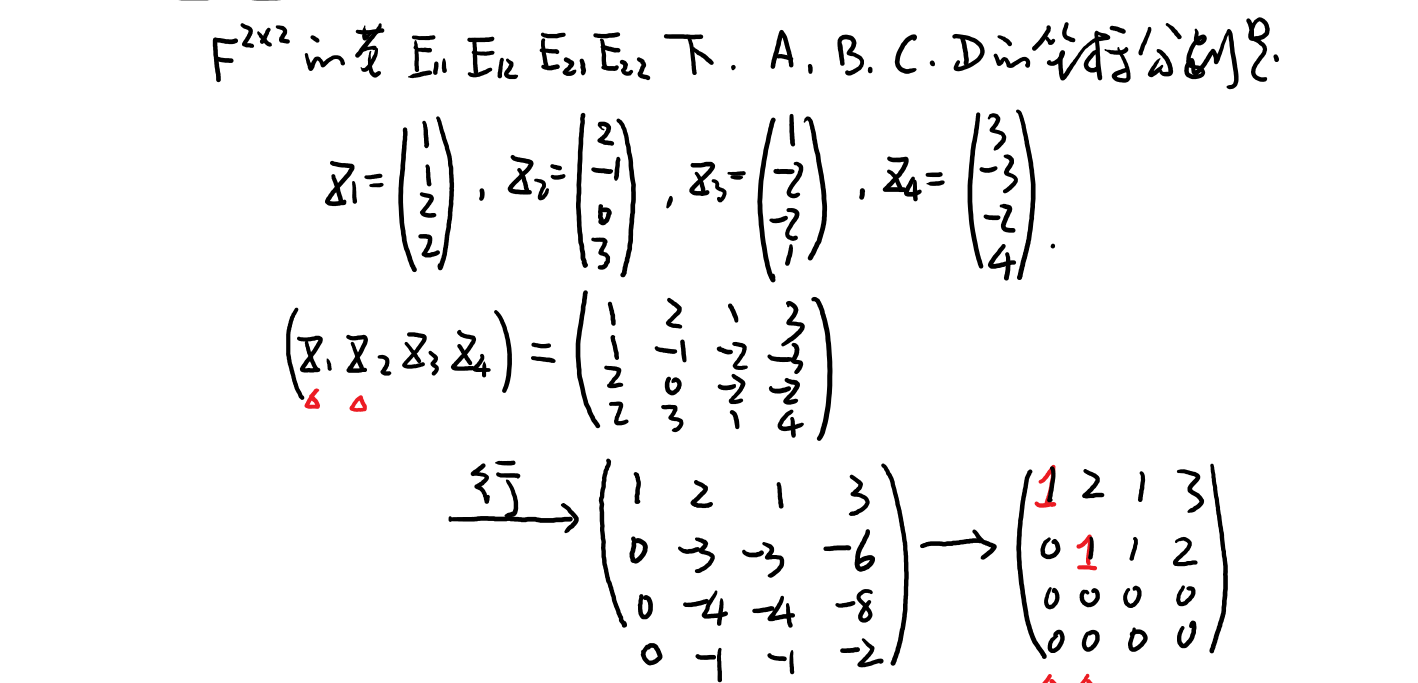 F^{2×2} 的基 E₁₁ E₁₂ E₂₁ E₂₂ 下. A. B. C. D 的坐标分别是.
X₁ = (1 1 2 2), X₂ = (2 -1 0 3), X₃ = (1 -2 -2 1), X₄ = (3 -3 -2 4).
(X₁ X₂ X₃ X₄) = (1 2 1 3
1 -1 -2 -3
2 0 -2 -2
2 3 1 4)
行→ (1 2 1 3
0 -3 -3 -6
0 -4 -4 -8
0 -1 -1 -2)
→ (1 2 1 3
0 1 1 2
0 0 0 0
0 0 0 0)